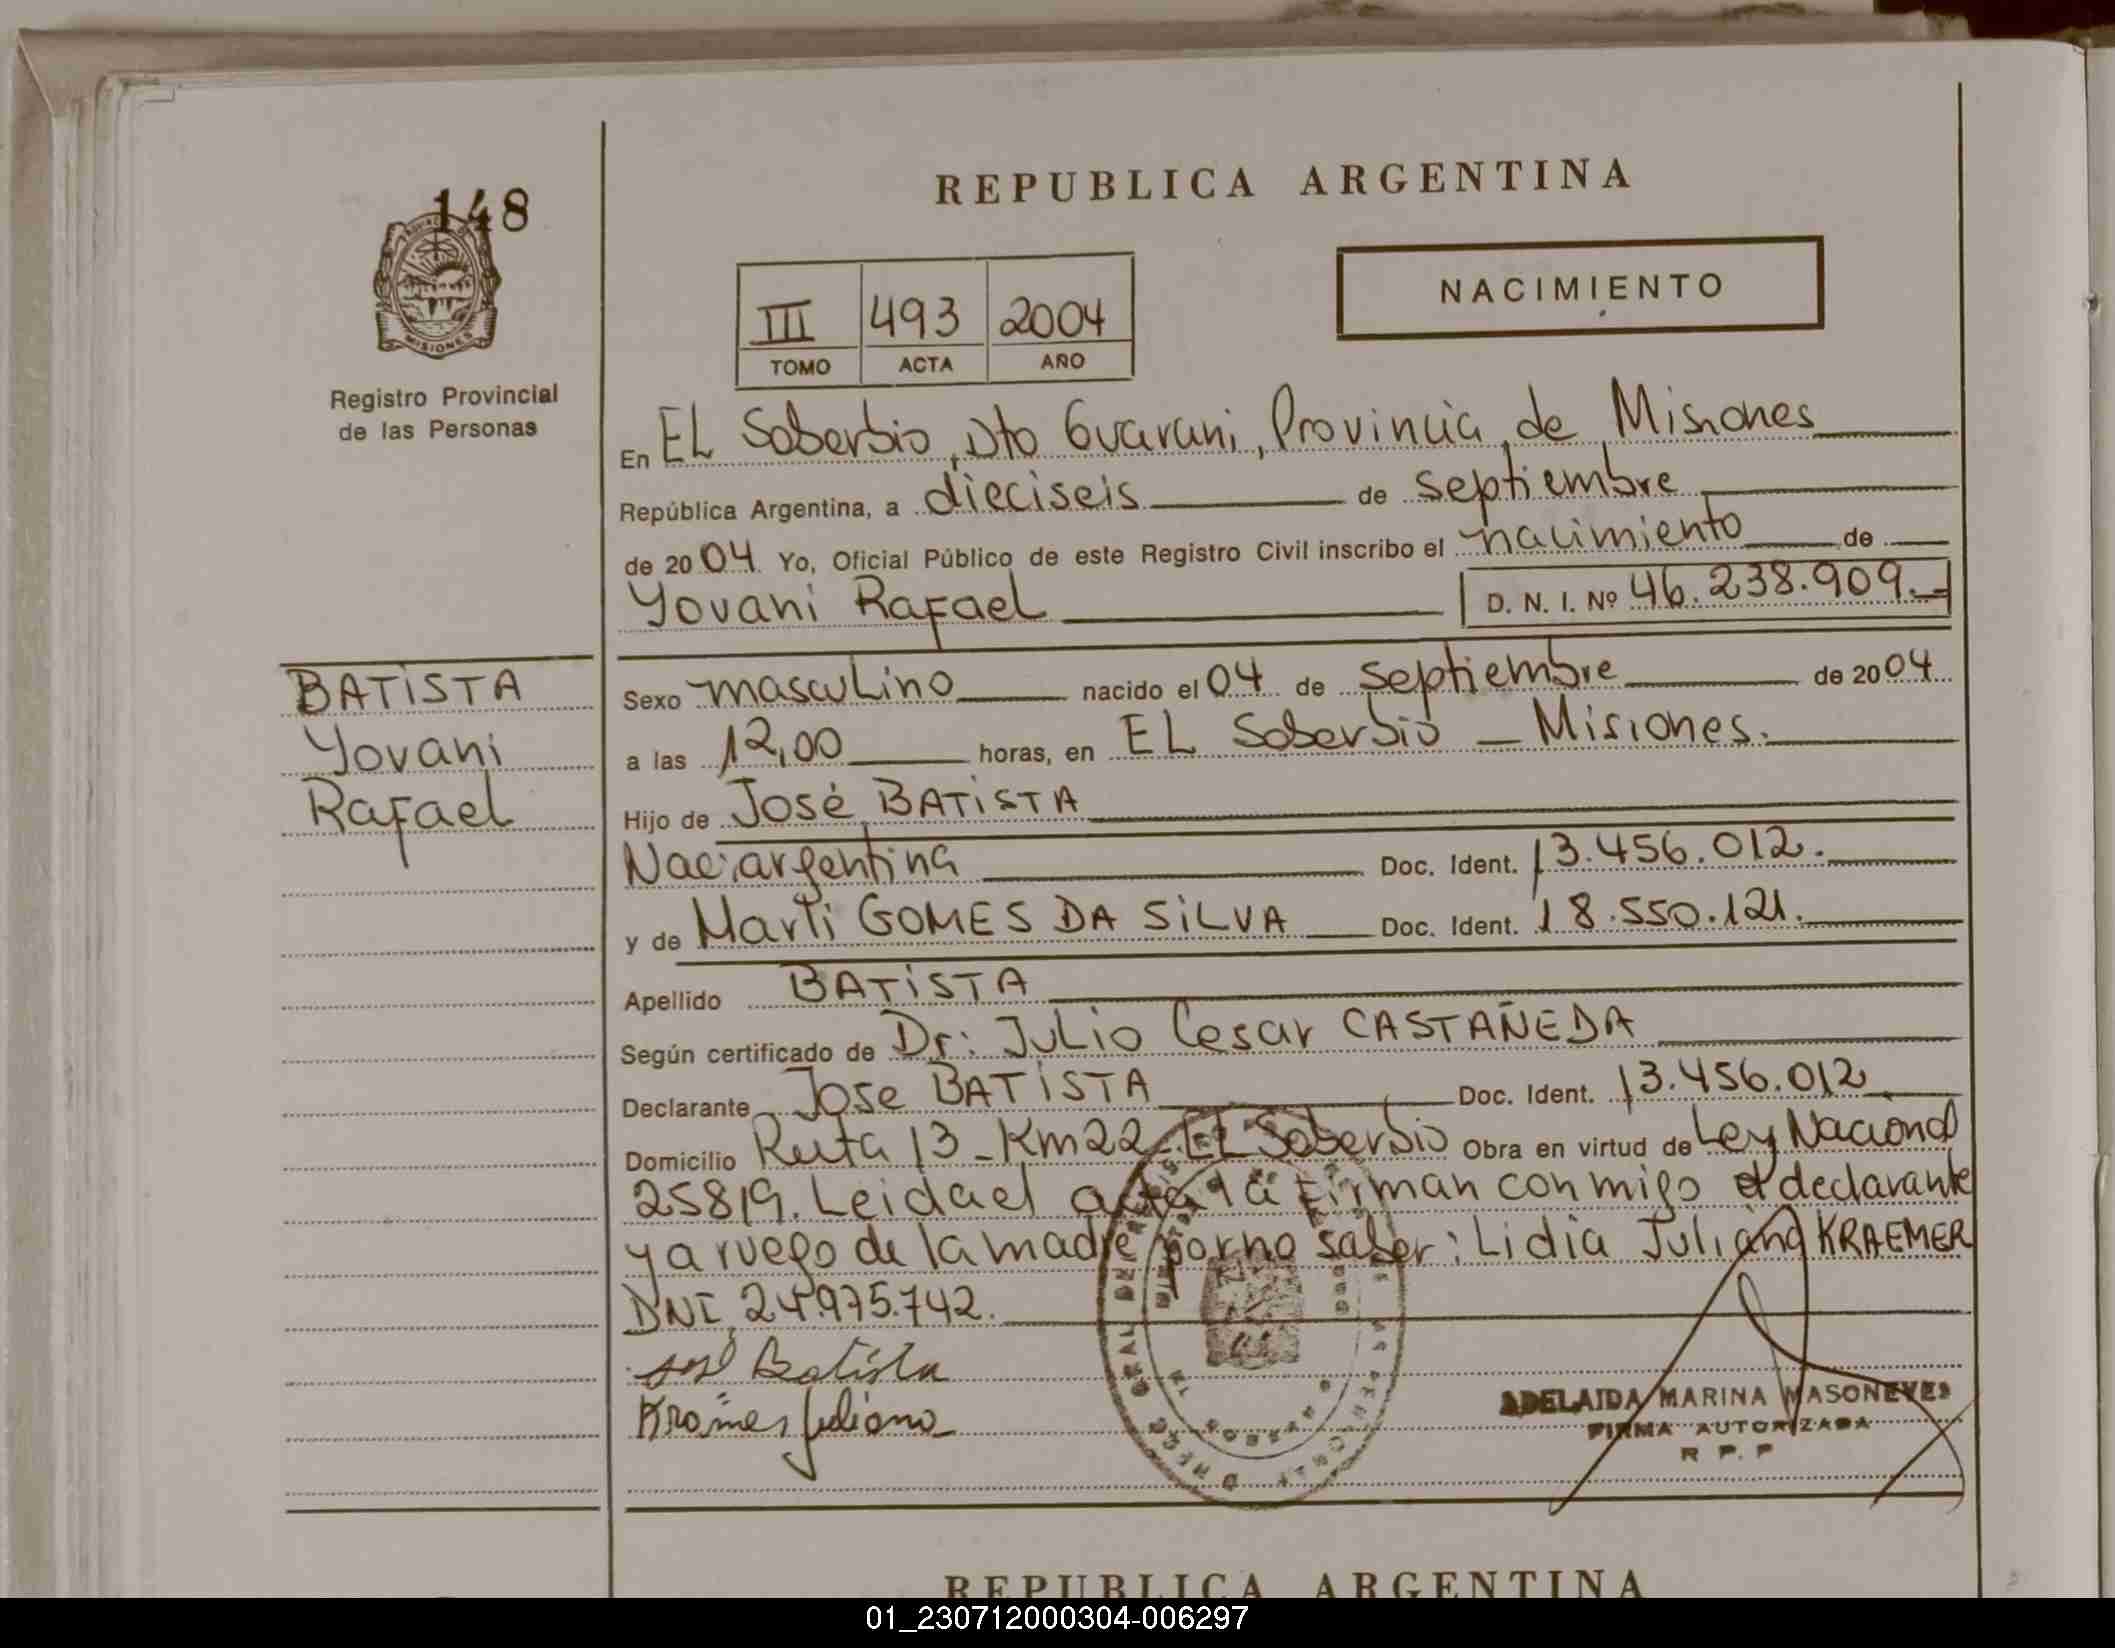 148
PROVINCIA DE
MISIONES
Registro Provincial
de las Personas
REPUBLICA ARGENTINA
NACIMIENTO
III 493 2004
TOMO ACTA AÑO
En EL Soberbio, Dto Guarani, Provincia de Misiones
República Argentina, a dieciseis de septiembre
de 2004 Yo, Oficial Público de este Registro Civil inscribo el nacimiento de
Yovani Rafael D. N. I. Nº 46.238.909.-
BATISTA
Yovani
Rafael
Sexo masculino nacido el 04 de septiembre de 2004
a las 12,00 horas, en EL Soberbio - Misiones.
Hijo de José BATISTA
Nac: argentina Doc. Ident. 13.456.012.
y de Marli GOMES DA SILVA Doc. Ident. 18.550.121.
Apellido BATISTA
Según certificado de Dr: Julio Cesar CASTAÑEDA
Declarante Jose BATISTA Doc. Ident. 13.456.012
Domicilio Ruta 13 - Km 22 - EL Soberbio Obra en virtud de Ley Nacional
25819. Leida el acta la firman conmigo el declarante
y a ruego de la madre por no saber: Lidia Juliana KRAEMER
DNI 24.975.742.
José Batista
Kramer Juliana
ADELAIDA MARINA MASONEVES
FIRMA AUTORIZADA
R P. P
REPUBLICA ARGENTINA
01_230712000304-006297